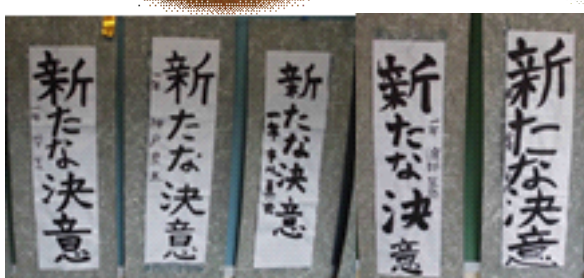 新たな決意
新たな決意
新たな決意
新たな決意
新たな決意